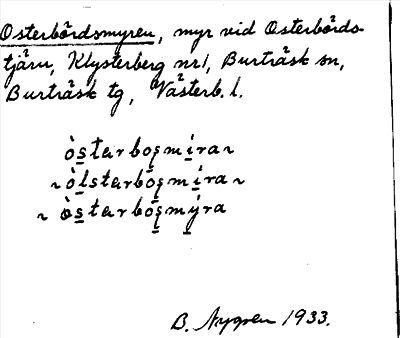 Osterbördsmyren, myr vid Osterbörds-
tjärn, Klysterberg nr 1, Burträsk sn,
Burträsk tg, Västerb. l.
òstarbosmíra~
~òlstarbósmíra~
~òstarbósmýra
B. Nygren 1933.